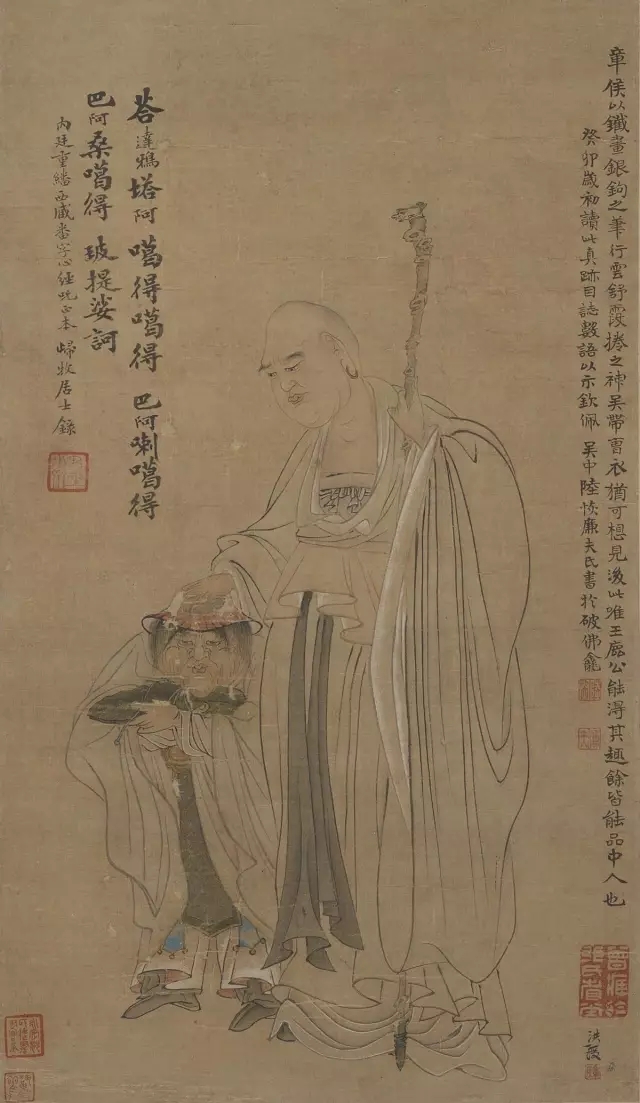 章侯以鐵畫銀鉤之筆行雲舒霞捲之神吳帶曹衣猶可想見後此唯王公能得其趣餘皆能品中人也
癸卯歲初讀此真跡因誌數語以示欽佩 吳中陸恢廉夫氏書於破佛龕
洪綬
荅達鴉塔阿 噶得噶得 巴阿喇噶得
巴阿桑噶得 玻提娑訶
內廷重繙西藏番字心經咒正本 歸牧居士錄